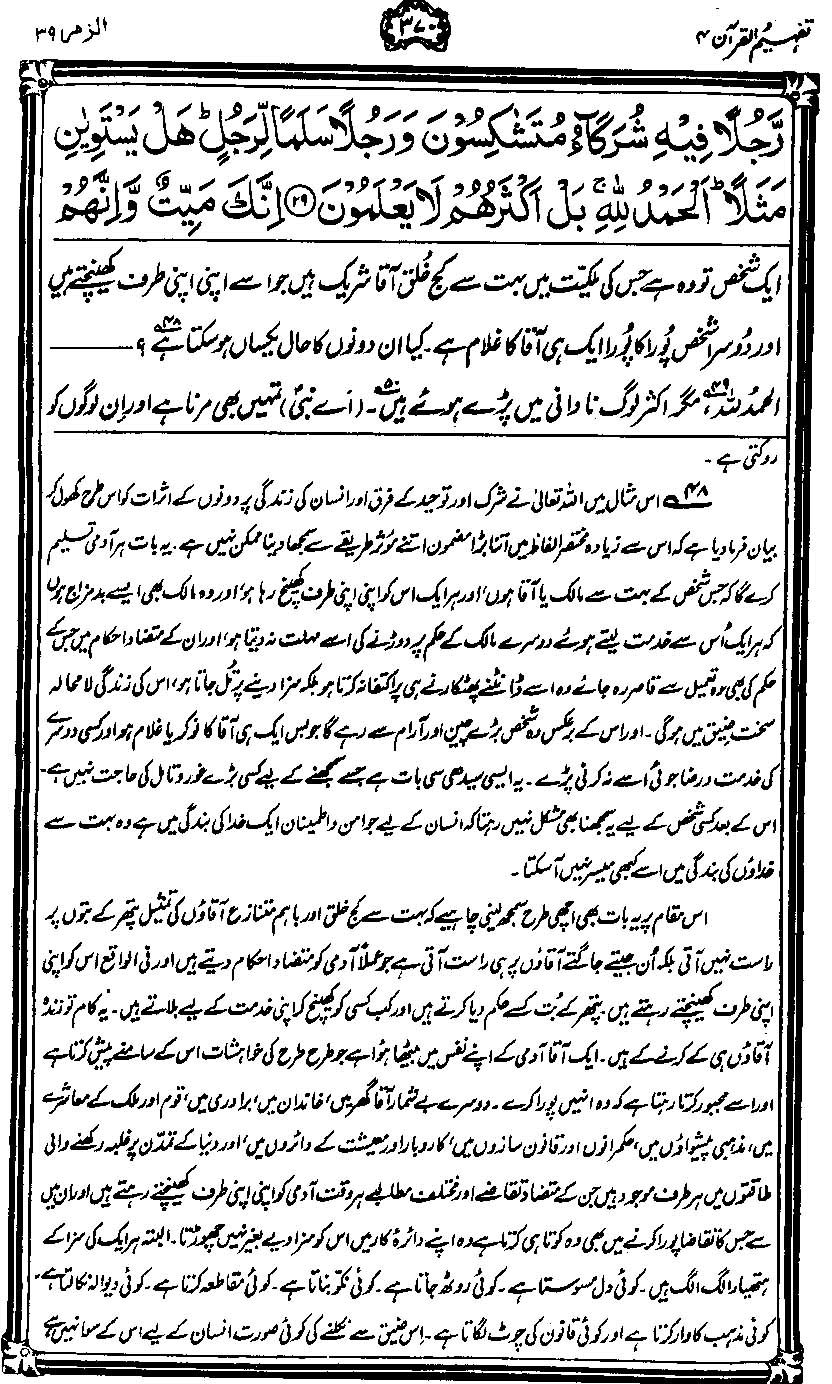 تفہیم القرآن ۴
۳۷۰
الزمر ۳۹
رَّجُلًا فِيْهِ شُرَكَآءُ مُتَشٰكِسُوْنَ وَرَجُلًا سَلَمًا لِّرَجُلٍ ؕ هَلْ يَسْتَوِيٰنِ
مَثَلًا ؕ اَلْحَمْدُ لِلّٰهِ ۚ بَلْ اَكْثَرُهُمْ لَا يَعْلَمُوْنَ ﴿۲۹﴾ اِنَّكَ مَيِّتٌ وَّاِنَّهُمْ
ایک شخص تو وہ ہے جس کی ملکیت میں بہت سے کج خُلق آقا شریک ہیں جو اسے اپنی اپنی طرف کھینچتے ہیں
اور دُوسرا شخص پُورا کا پُورا ایک ہی آقا کا غلام ہے۔ کیا ان دونوں کا حال یکساں ہو سکتا ہے۴۸؟
الحمدُ للہ۴۹، مگر اکثر لوگ نادانی میں پڑے ہوئے ہیں۵۰۔ (اَے نبیؐ) تمہیں بھی مرنا ہے اور اِن لوگوں کو
روکتی ہے۔
۴۸ اس مثال میں اللہ تعالیٰ نے شرک اور توحید کے فرق اور انسان کی زندگی پر دونوں کے اثرات کو اس طرح کھول کر
بیان فرما دیا ہے کہ اس سے زیادہ مختصر الفاظ میں اتنا بڑا مضمون اتنے مؤثر طریقے سے سمجھا دینا ممکن نہیں ہے۔ یہ بات ہر آدمی تسلیم
کرے گا کہ جس شخص کے بہت سے مالک یا آقا ہوں، اور ہر ایک اس کو اپنی اپنی طرف کھینچ رہا ہو، اور وہ مالک بھی ایسے بد مزاج ہوں
کہ ہر ایک اُس سے خدمت لیتے ہوئے دوسرے مالک کے حکم پر دوڑنے کی اسے مہلت نہ دیتا ہو، اور ان کے متضاد احکام میں جس کے
حکم کی بھی وہ تعمیل سے قاصر رہ جائے وہ اسے ڈانٹنے پھٹکارنے ہی پر اکتفا نہ کرتا ہو بلکہ سزا دینے پر تُل جاتا ہو، اس کی زندگی لامحالہ
سخت ضیق میں ہوگی۔ اور اس کے برعکس وہ شخص بڑے چین اور آرام سے رہے گا جو بس ایک ہی آقا کا نوکر یا غلام ہو اور کسی دوسرے
کی خدمت و رضا جوئی اُسے نہ کرنی پڑے۔ یہ ایسی سیدھی سی بات ہے جسے سمجھنے کے لیے کسی بڑے غور و تامل کی حاجت نہیں ہے۔
اس کے بعد کسی شخص کے لیے یہ سمجھنا بھی مشکل نہیں رہتا کہ انسان کے لیے جو امن و اطمینان ایک خدا کی بندگی میں ہے وہ بہت سے
خداؤں کی بندگی میں اسے کبھی میسر نہیں آ سکتا۔
اس مقام پر یہ بات بھی اچھی طرح سمجھ لینی چاہیے کہ بہت سے کج خلق اور باہم متنازع آقاؤں کی تمثیل پتھر کے بتوں پر
راست نہیں آتی بلکہ اُن جیتے جاگتے آقاؤں پر ہی راست آتی ہے جو عملاً آدمی کو متضاد احکام دیتے ہیں اور فی الواقع اس کو اپنی
اپنی طرف کھینچتے رہتے ہیں۔ پتھر کے بُت کسے حکم دیا کرتے ہیں اور کب کسی کو کھینچ کر اپنی خدمت کے لیے بلاتے ہیں۔ یہ کام تو زندہ
آقاؤں ہی کے کرنے کے ہیں۔ ایک آقا آدمی کے اپنے نفس میں بیٹھا ہُوا ہے جو طرح طرح کی خواہشات اس کے سامنے پیش کرتا ہے
اور اسے مجبور کرتا رہتا ہے کہ وہ انہیں پورا کرے۔ دوسرے بے شمار آقا گھر میں، خاندان میں، برادری میں، قوم اور ملک کے معاشرے
میں، مذہبی پیشواؤں میں، حکمرانوں اور قانون سازوں میں، کاروبار اور معیشت کے دائروں میں، اور دنیا کے تمدّن پر غلبہ رکھنے والی
طاقتوں میں ہر طرف موجود ہیں جن کے متضاد تقاضے اور مختلف مطالبے ہر وقت آدمی کو اپنی اپنی طرف کھینچتے رہتے ہیں اور ان میں
سے جس کا تقاضا پورا کرنے میں بھی وہ کوتاہی کرتا ہے وہ اپنے دائرۂ کار میں اس کو سزا دیے بغیر نہیں چھوڑتا۔ البتہ ہر ایک کی سزا کے
ہتھیار الگ الگ ہیں۔ کوئی دل مسوستا ہے۔ کوئی روٹھ جاتا ہے۔ کوئی نکّو بناتا ہے۔ کوئی مقاطعہ کرتا ہے۔ کوئی دیوالہ نکالتا ہے،
کوئی مذہب کا وار کرتا ہے اور کوئی قانون کی چوٹ لگاتا ہے۔ اِس ضیق سے نکلنے کی کوئی صورت انسان کے لیے اس کے سوا نہیں ہے